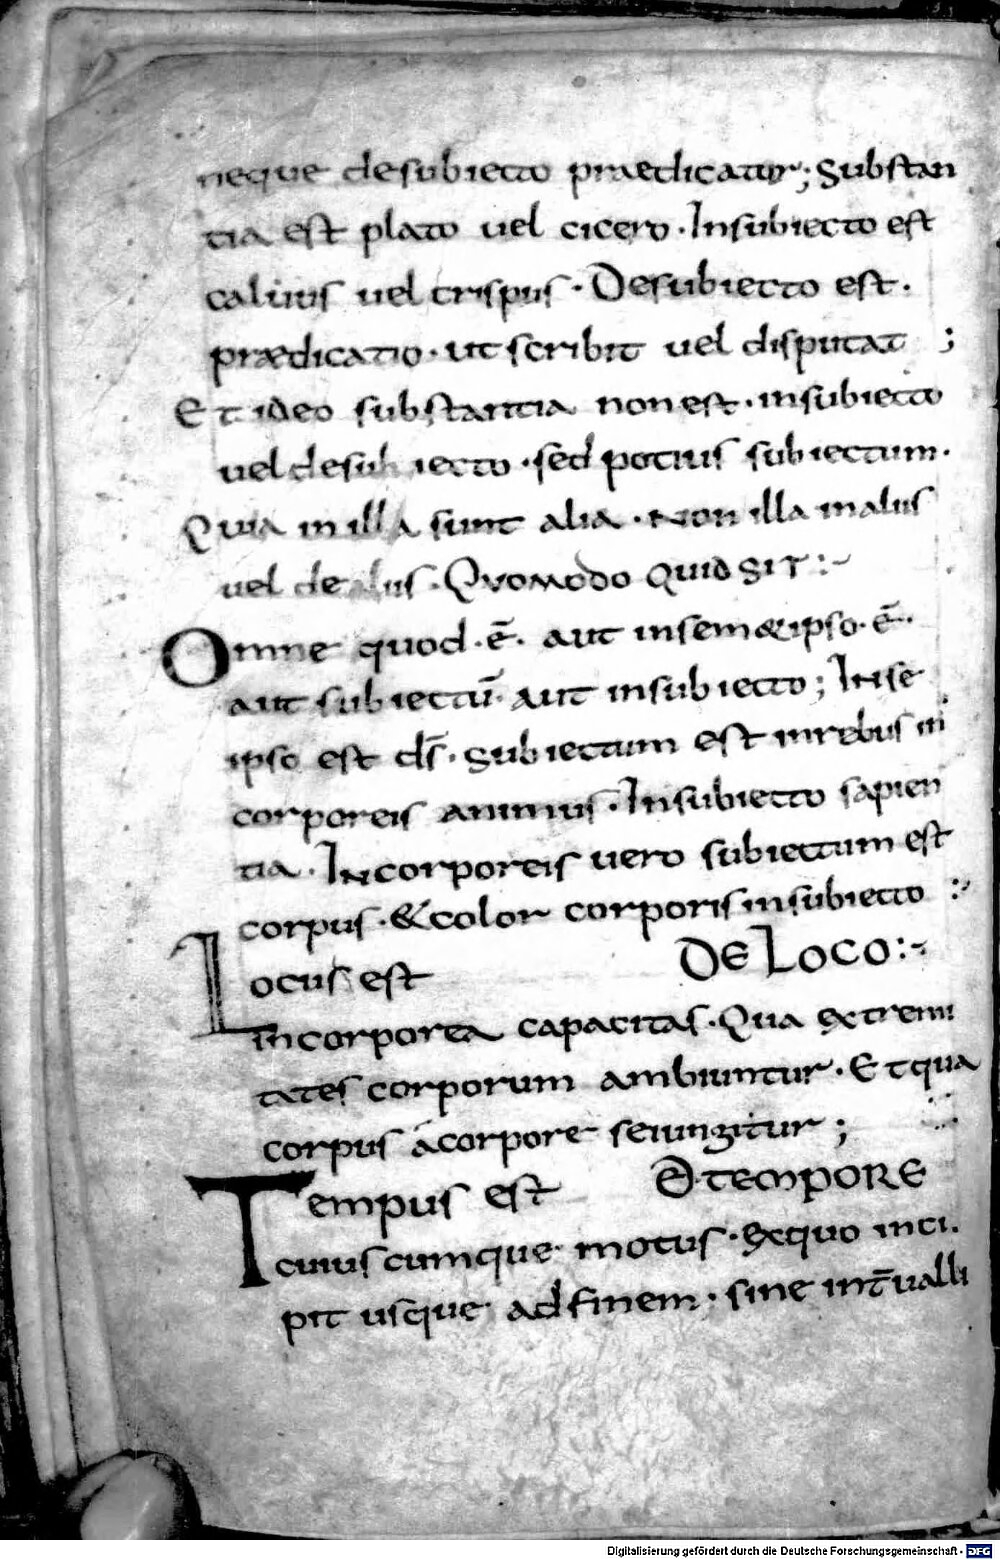 neque desubiecto praedicatur; Substan
tia est plato uel cicero · Insubiecto est
caluus uel crispus · Desubiecto est ·
prædicatio · ut scribit uel disputat ;
Et ideo substantia nonest · insubiecto
uel desubiecto · sed potius subiectum ·
Quia in illa sunt alia · Non illa inaliis
uel de aliis · Quomodo quid sit :~
Omne quod · ē · aut insem&ipso · ē ·
aut subiectū · aut insubiecto ; Inse
ipso est ds̄ · Subiectum est inrebus in
corporeis animus · Insubiecto sapien
tia · Incorporeis uero subiectum est
corpus · &color corporis insubiecto :~
Locus est DE LOCO :~
incorporea capacitas · Qua extremi
tates corporum ambiuntur · Et qua
corpus ácorpore seiungitur ;
Tempus est DE TEMPORE
cuiuscumque motus · Exquo inci ·
pit usque adfinem · sine int̄ualli
Digitalisierung gefördert durch die Deutsche Forschungsgemeinschaft - DFG